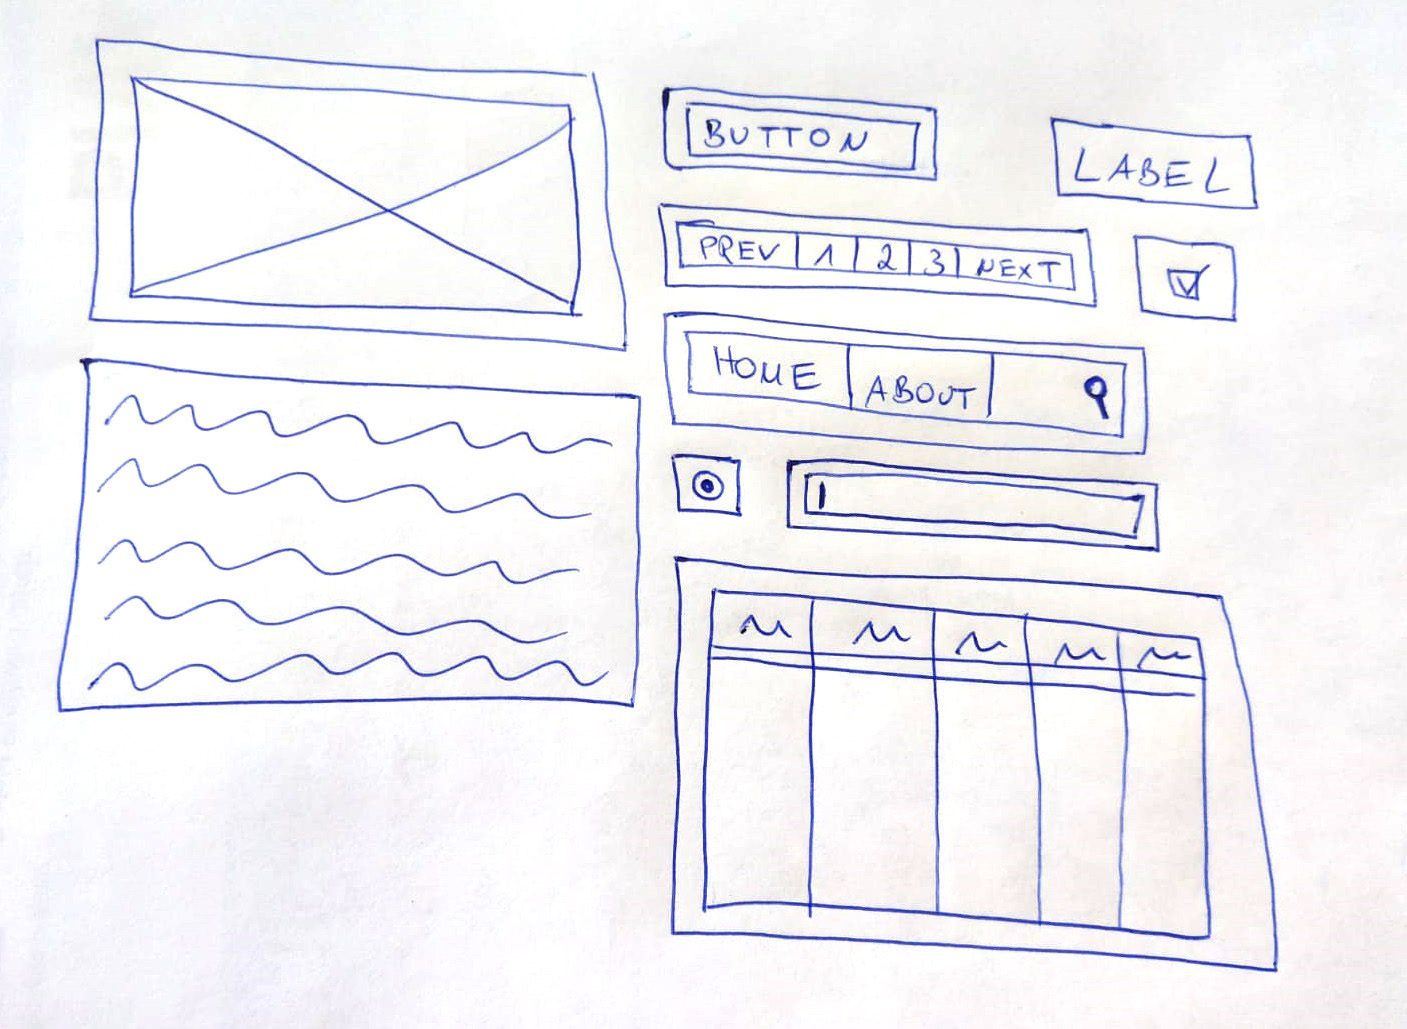 BUTTON
LABEL
PREV 1 2 3 NEXT
HOME ABOUT